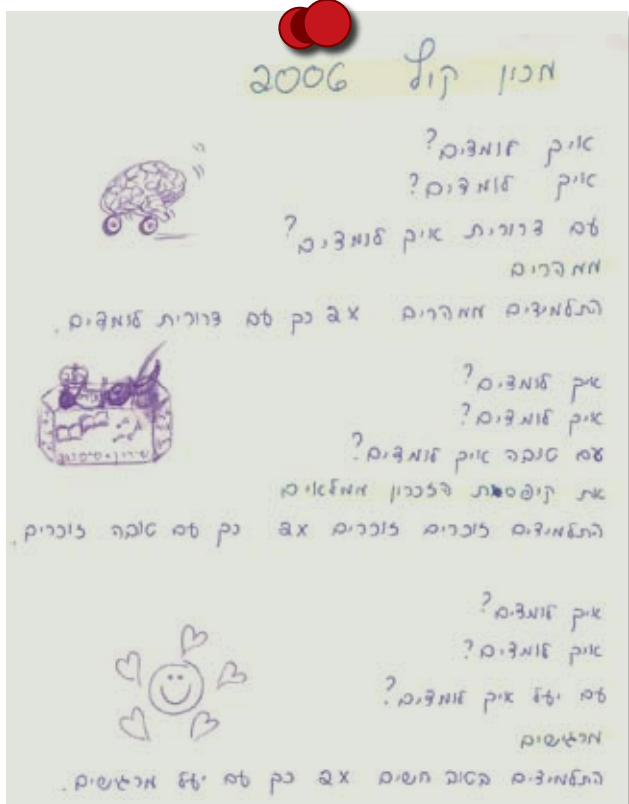 מכון קול 2006
איך לומדים?
איך לומדים?
עם דרורית איך לומדים?
ממהרים
התלמידים ממהרים x2 כך עם דרורית לומדים.
איך לומדים?
איך לומדים?
עם טובה איך לומדים?
את קיפסת הזכרון ממלאים
התלמידים זוכרים זוכרים x2 כך עם טובה זוכרים.
איך לומדים?
איך לומדים?
עם יעל איך לומדים?
מרגישים
התלמידים בטוב חשים x2 כך עם יעל מרגישים.